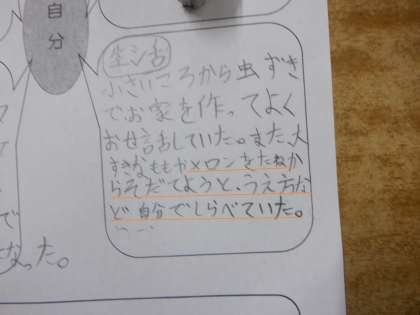 自分
生活
小さいころから虫ずき
でお家を作ってよく
お世話していた。また、大
すきなももやメロンをたねか
らそだてようと、うえ方な
ど自分でしらべていた。
で
なった。